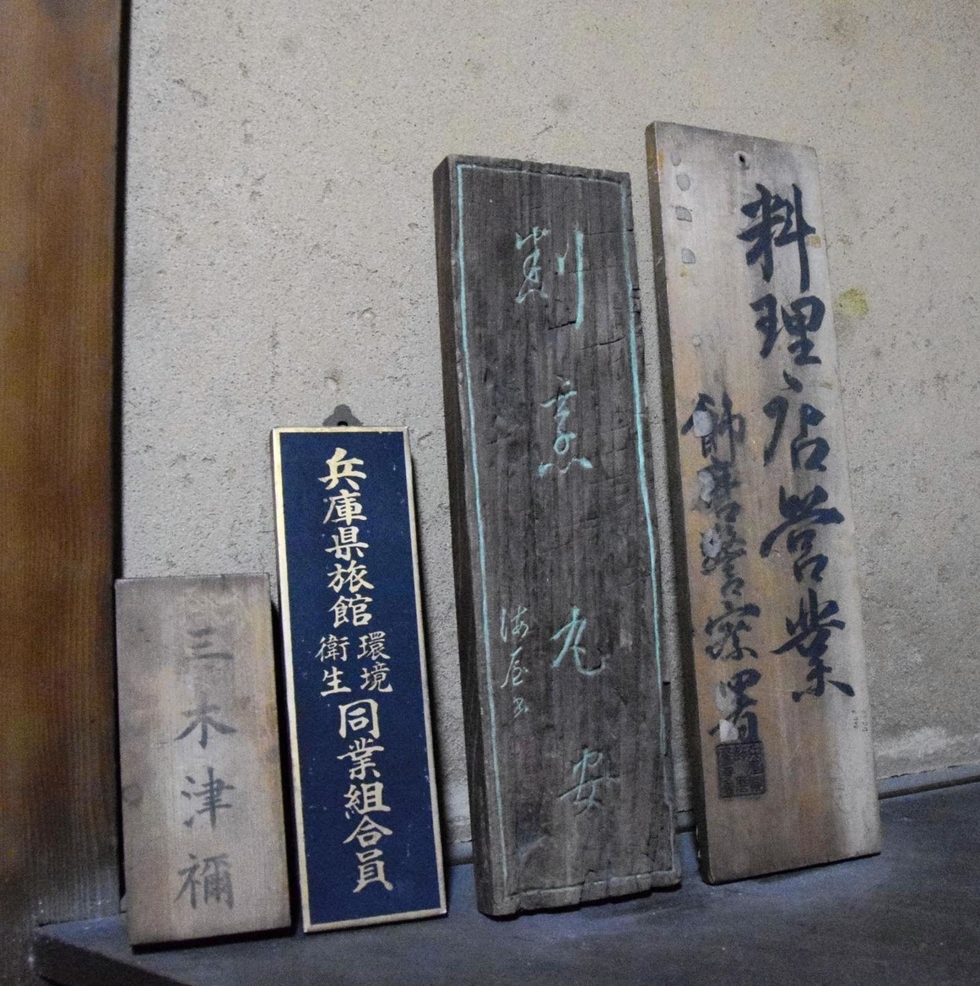 三木津禰
兵庫県旅館
環境
衛生
同業組合員
割烹
丸安
海屋書
料理店営業
飾磨警察署